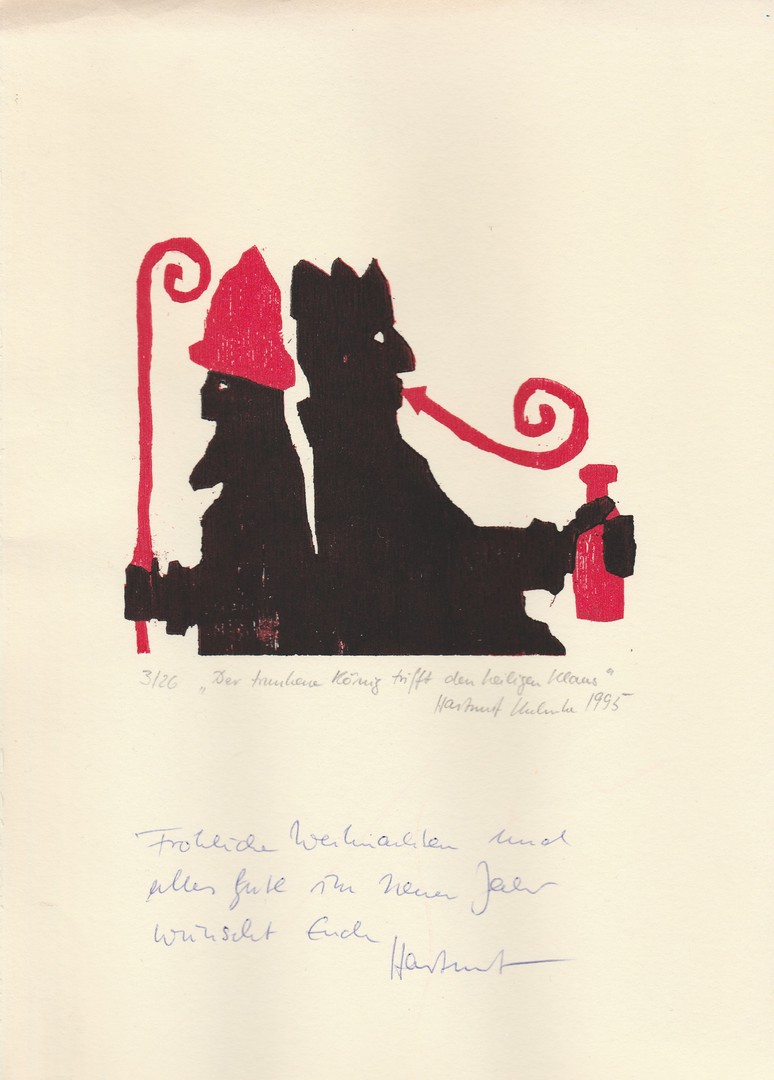 3/26 „Der trunkene König trifft den heiligen Klaus"
Hartmut 1995
Fröhliche Weihnachten und
alles Gute im neuen Jahr
wünscht Euch
Hartmut